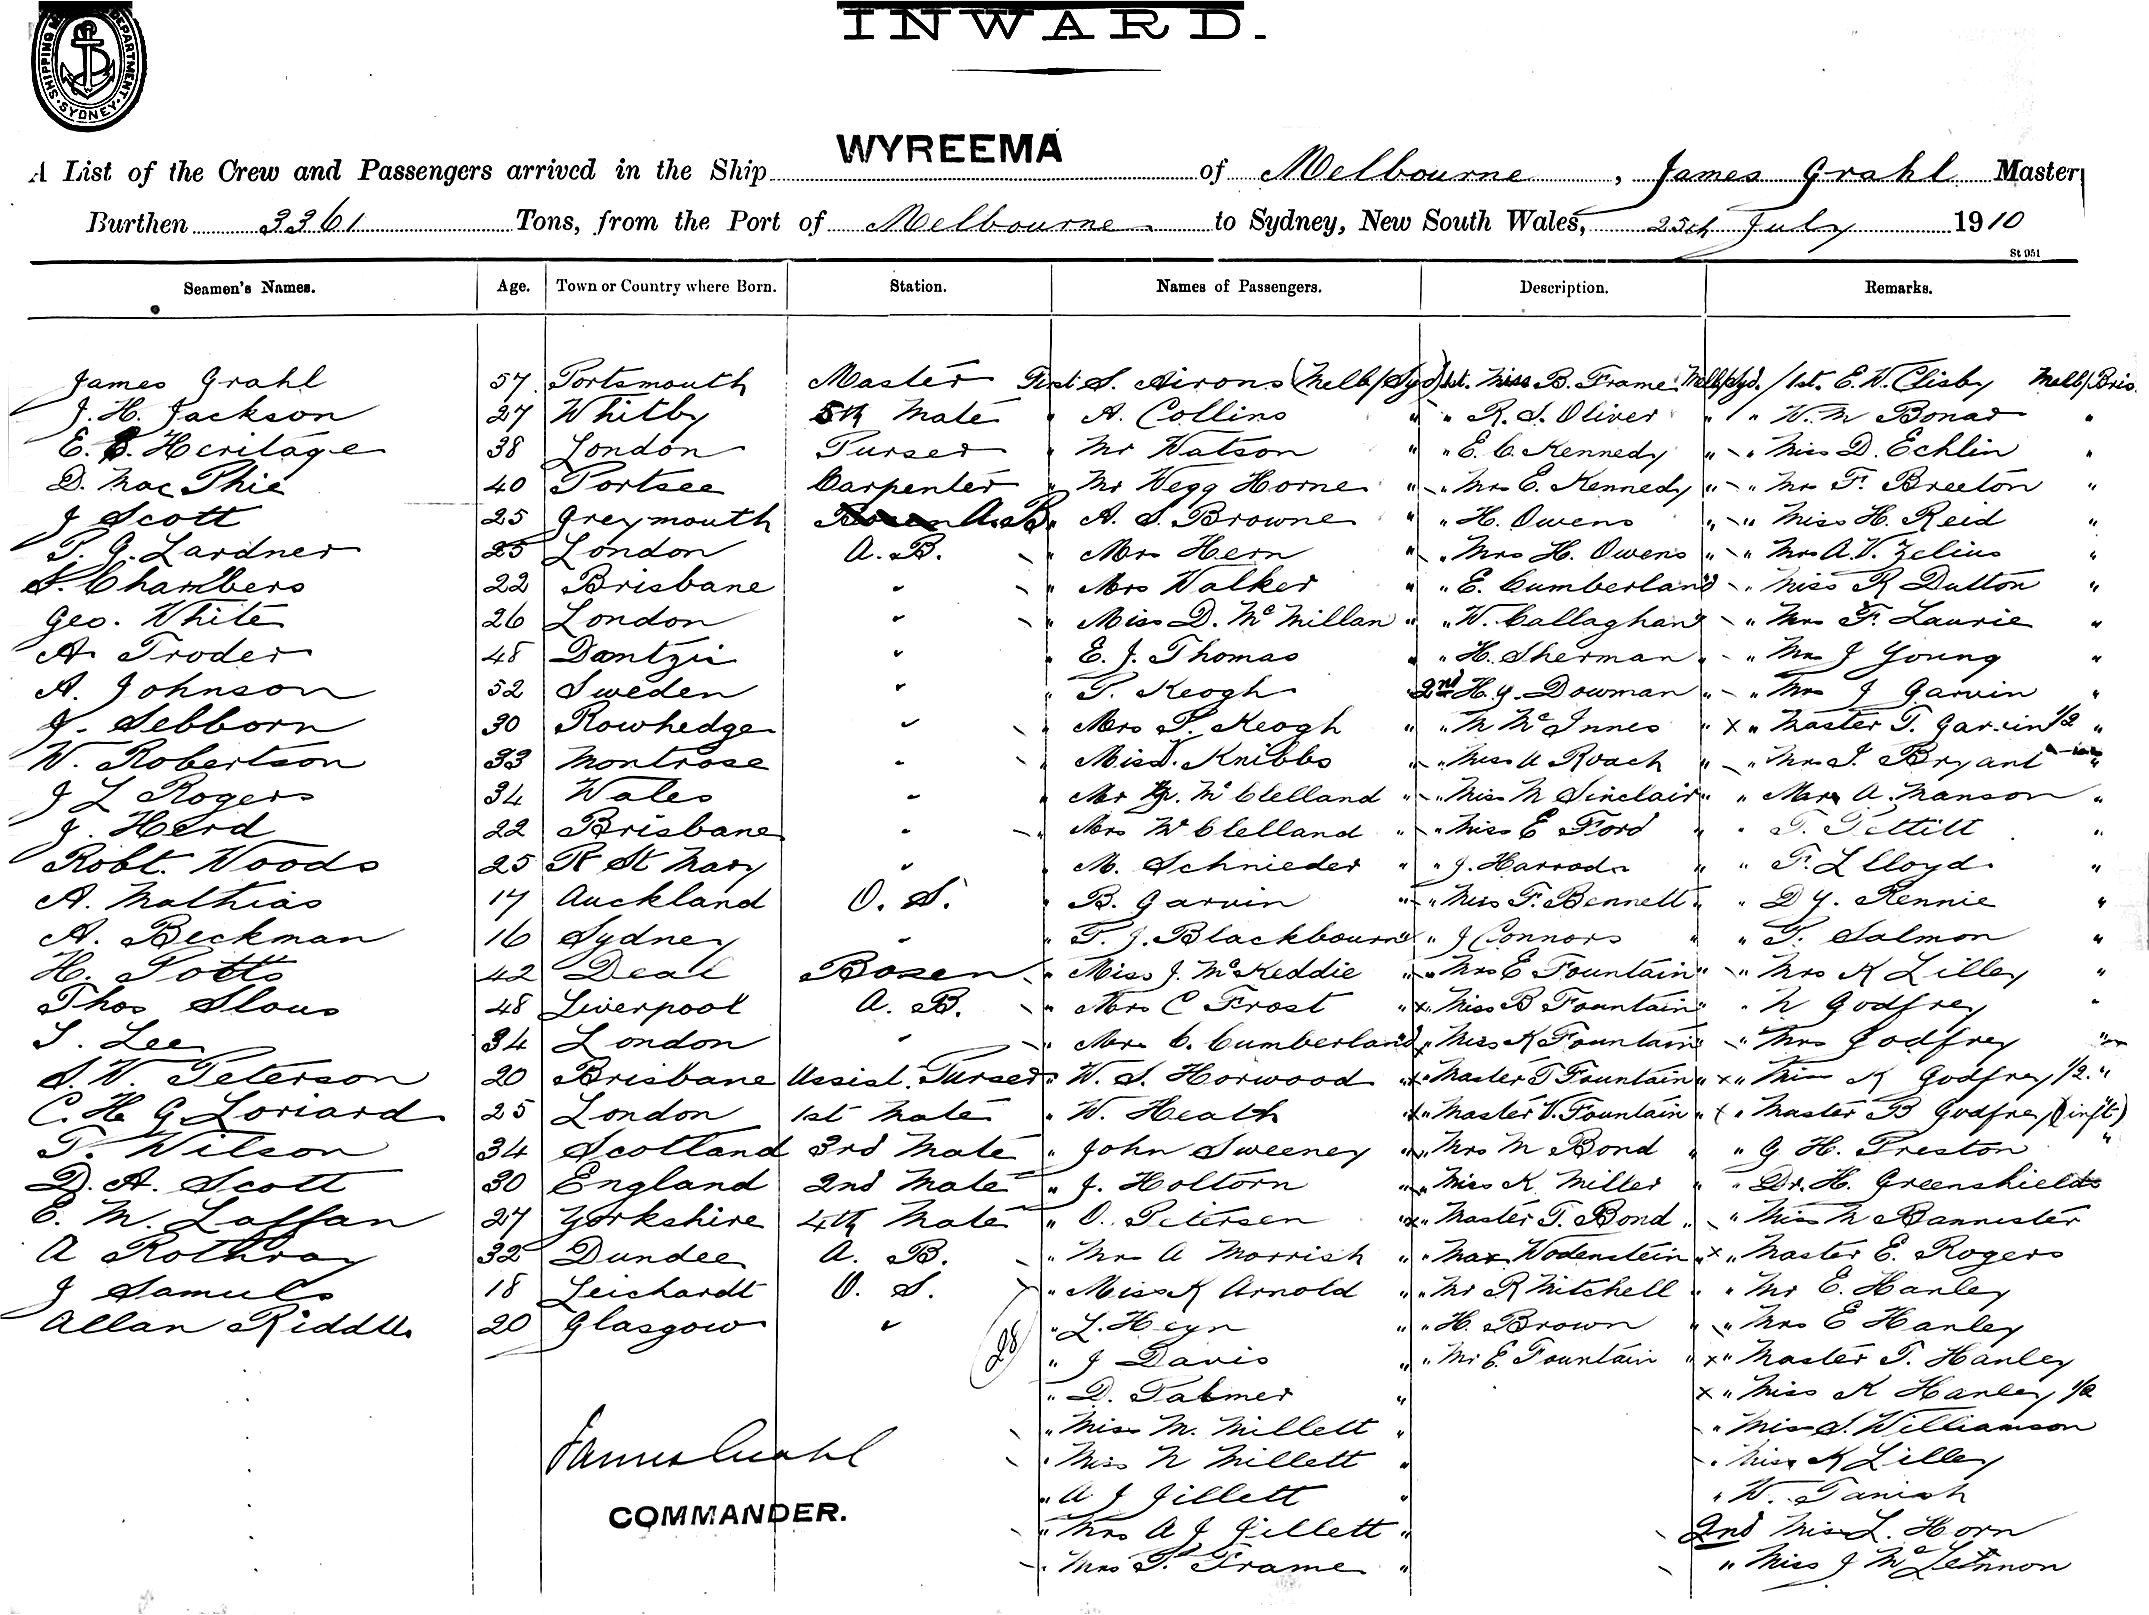 SHIPPING DEPARTMENT SYDNEY
INWARD.
WYREEMA
A List of the Crew and Passengers arrived in the Ship of Melbourne, James Grahl Master
Burthen 3361 Tons, from the Port of Melbourne to Sydney, New South Wales, 25th July 1910
St 951
Seamen's Names. Age. Town or Country where Born. Station. Names of Passengers. Description. Remarks.
James Grahl 57 Portsmouth Master First S. Airons (Melb/Syd) 1st. Miss B. Frame Melb/Syd. / 1st. E. W. Clisby Melb/Bris.
J. H. Jackson 27 Whitby 5th Mate " A. Collins " " R. S. Oliver " " W. M Bonar "
E. B. Heritage 38 London Purser " Mr Watson " " E. C. Kennedy " " Miss D. Echlin "
D. MacPhie 40 Portsee Carpenter " Mr Wegg Horne " " Mrs E. Kennedy " " Mr F. Breeton "
J Scott 25 Greymouth A. B. " A. S. Browne " " H. Owens " " Miss H. Reid "
P. G. Lardner 25 London A. B. " Mrs Hern " " Mrs H. Owens " " Mrs A. V. Zelius "
S. Chambers 22 Brisbane " " Mrs Walker " " E. Cumberland " Miss R Dutton "
Geo. White 26 London " " Miss D. McMillan " " W. Callaghan " Mrs F. Laurie "
A. Troder 48 Dantzic " " E. J. Thomas " " H. Sherman " " Mrs J Young "
A. Johnson 52 Sweden " " P. Keogh 2nd H. G. Dowman " " Mrs J Garvin "
J. Sebborn 30 Rowhedge " " Mrs P. Keogh " " M McInnes " x " Master T. Garvin 1/2 "
W. Robertson 33 Montrose " " Miss Knibbs " " Miss A Roach " " Mrs J. Bryant "
J L Rogers 34 Wales " " Mr McClelland " " Miss M Sinclair " " A. Manson "
J. Herd 22 Brisbane " " Mrs McClelland " " Miss E Ford " " T. Pettitt "
Robt. Woods 25 St Mary " " M. Schnieder " " J. Harrods " " F. Lloyd "
A. Mathias 17 Auckland O. S. " B. Garvin " " Miss F. Bennett " " D G. Rennie "
A. Beckman 16 Sydney " " T. J. Blackbourn " J Connors " " P. Salmon "
H. Potts 42 Deal Bosen " Miss J. McKeddie " " Mrs E Fountain " " Mrs K Lilley "
Thos Slous 48 Liverpool A. B. " Mrs C Frost " x " Miss B Fountain " " N Godfrey "
S. Lee 34 London " " Mrs C. Cumberland x " Miss K Fountain " " Mrs Godfrey "
S. W. Peterson 20 Brisbane Assist. Purser " W. S. Horwood " x " Master T Fountain " x " Miss K Godfrey 1/2 "
C. H G Loriard 25 London 1st Mate " W. Heath " x " Master V. Fountain " x " Master B Godfrey (inft)
T. Wilson 34 Scotland 3rd Mate " John Sweeney " " Mrs M Bond " " G H. Preston "
D. A. Scott 30 England 2nd Mate " J. Holtorn " " Miss K. Miller " " Dr. H. Greenshields
E. M. Laffan 27 Yorkshire 4th Mate " O. Petersen " x " Master T. Bond " " Miss M Bannister
A Rothray 32 Dundee A. B. " Mrs A Morrish " " Max Wodenstein " x " Master E. Rogers
J Samuels 18 Leichardt O. S. " Miss K Arnold " " Mr R Mitchell " " Mr E. Hanley
Allan Riddle 20 Glasgow " " L. Heyn " " H. Brown " " Mrs E Hanley
28 " J Davis " " Mr E. Fountain " x " Master T. Hanley
" D. Palmer " x " Miss K Hanley 1/2
" Miss M. Millett " " Miss S. Williamson
James Grahl " Miss N Millett " " Miss K Lilley
" A J Jillett " " W. Tanish
COMMANDER. " Mrs A J Jillett " 2nd Miss L. Horn
" Mrs P. Frame " " Miss J McLennon